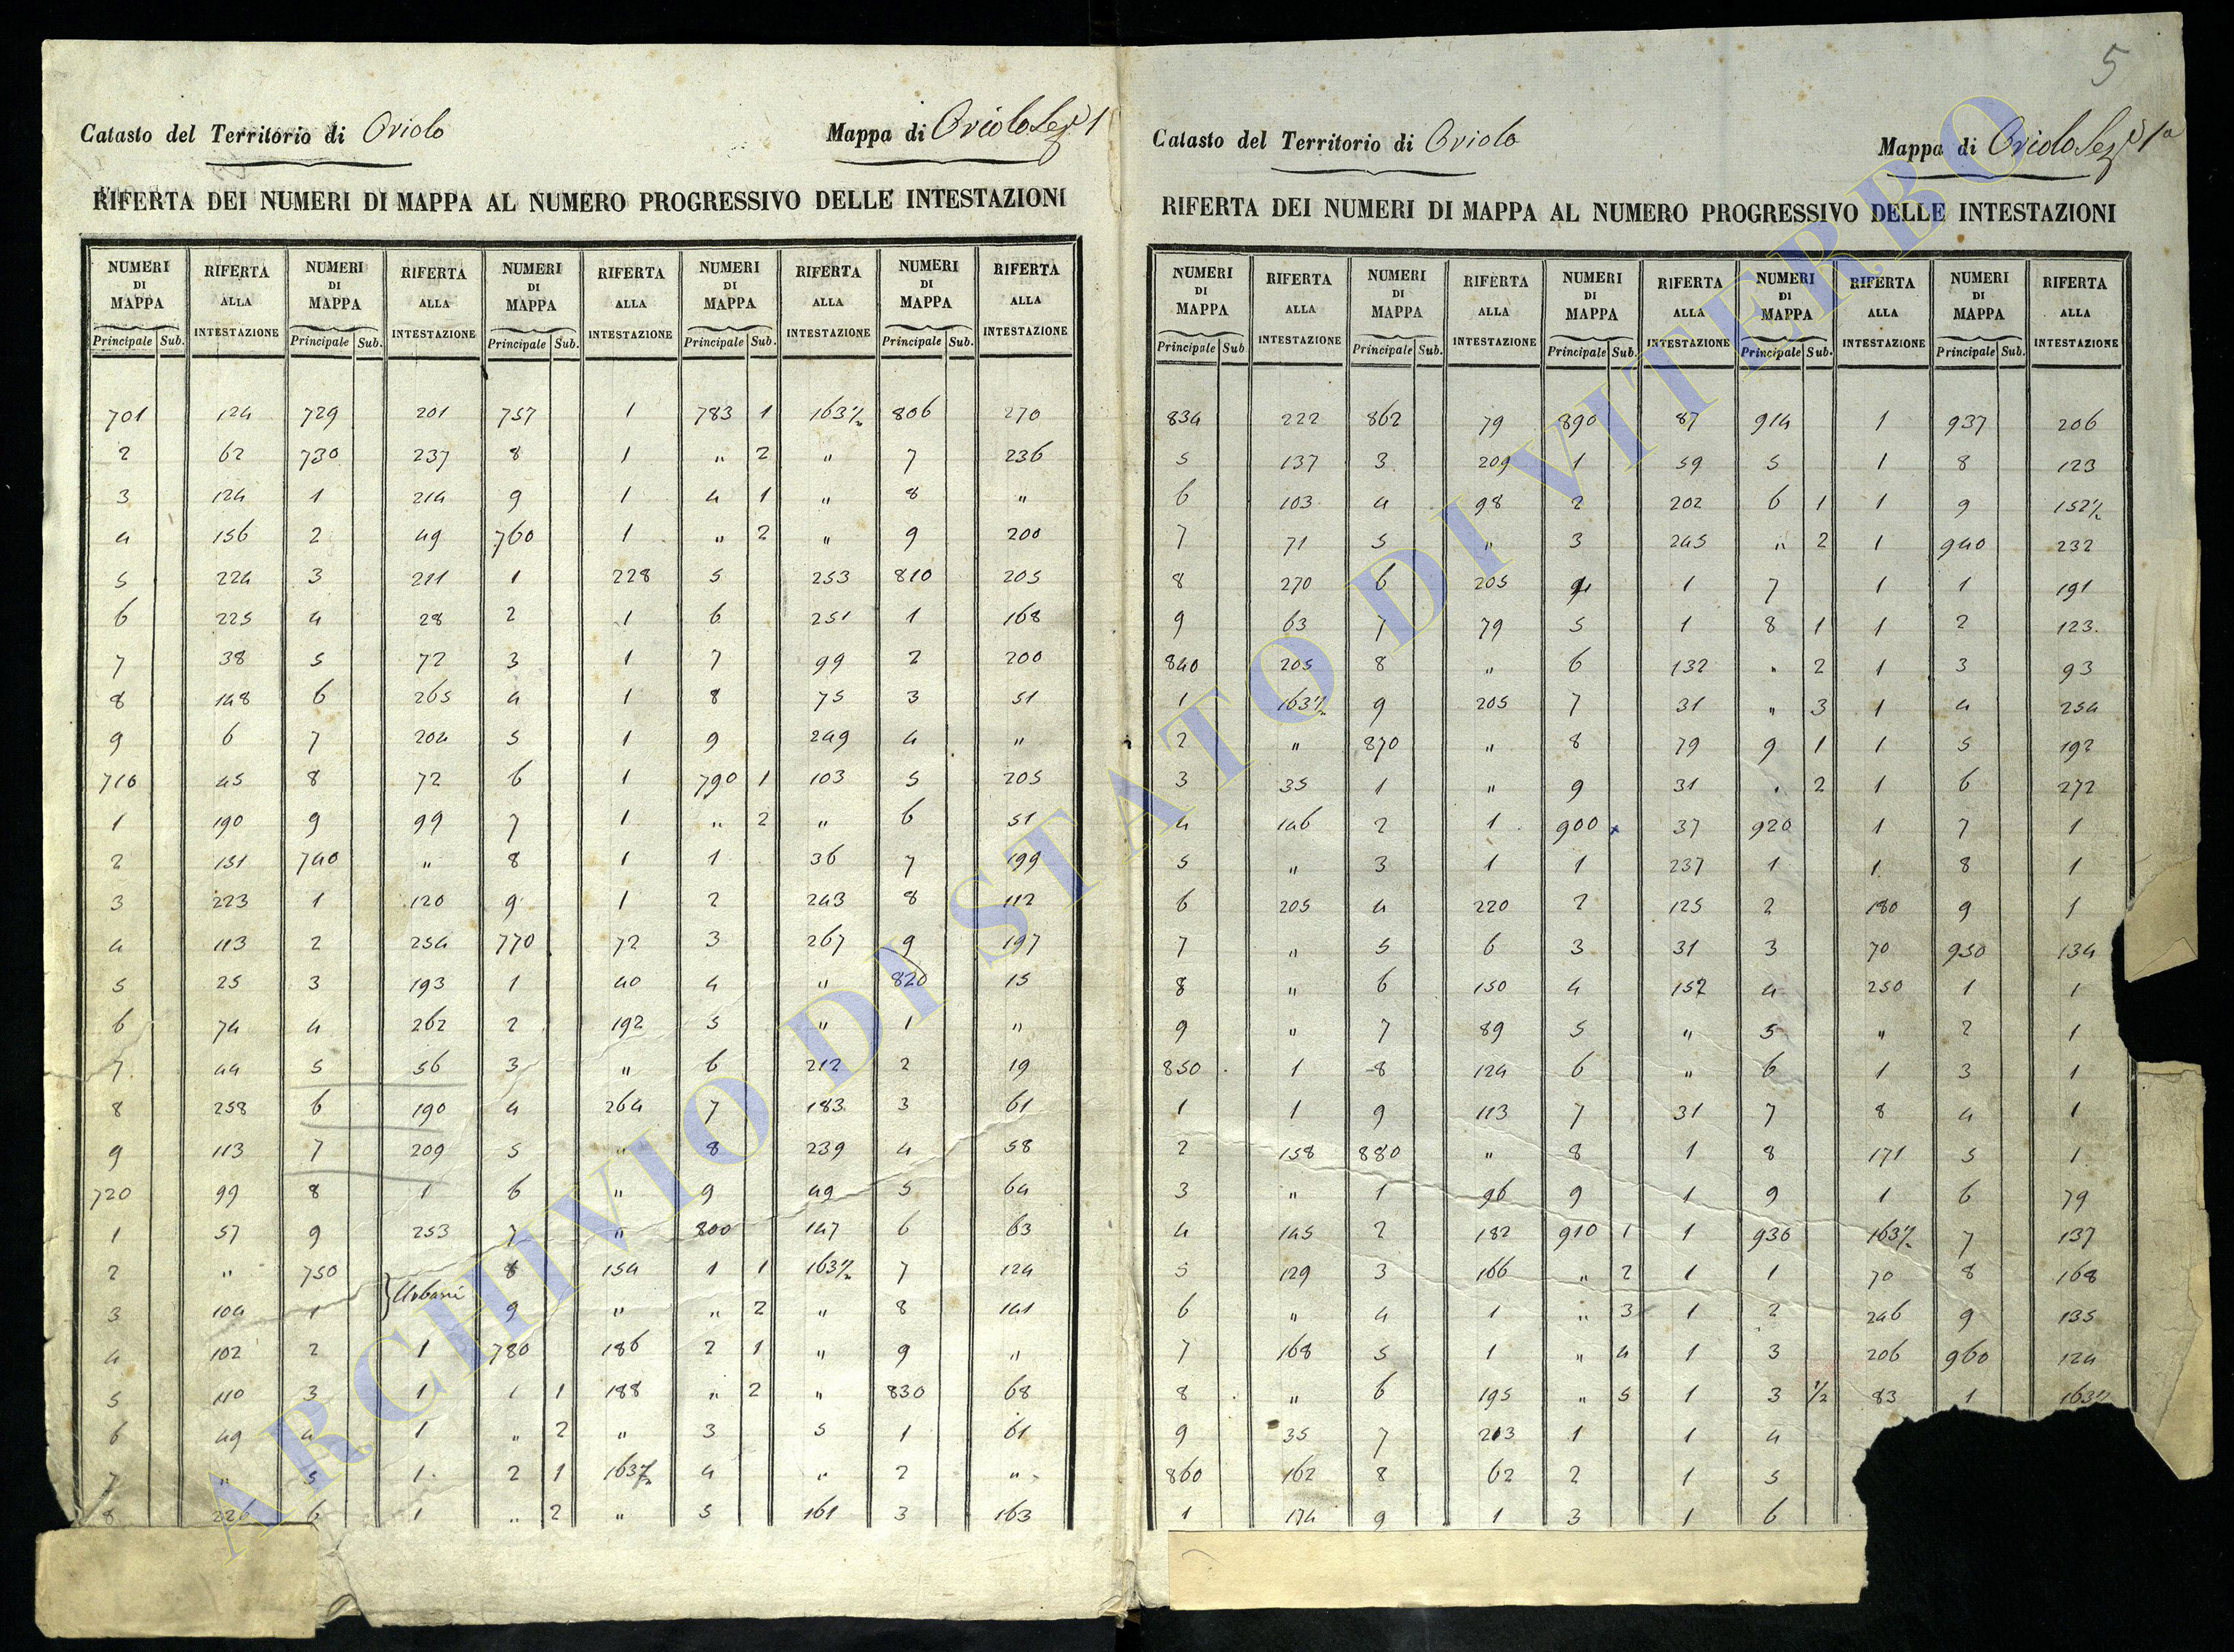 5
Catasto del Territorio di Oriolo Mappa di Oriolo Sez.e 1
RIFERTA DEI NUMERI DI MAPPA AL NUMERO PROGRESSIVO DELLE INTESTAZIONI
NUMERI DI MAPPA RIFERTA ALLA INTESTAZIONE NUMERI DI MAPPA RIFERTA ALLA INTESTAZIONE NUMERI DI MAPPA RIFERTA ALLA INTESTAZIONE NUMERI DI MAPPA RIFERTA ALLA INTESTAZIONE NUMERI DI MAPPA RIFERTA ALLA INTESTAZIONE
Principale Sub. Principale Sub. Principale Sub. Principale Sub. Principale Sub.
701 124 729 201 757 1 783 1 163½ 806 270
2 62 730 237 8 1 " 2 " 7 236
3 124 1 214 9 1 4 1 " 8 "
4 156 2 49 760 1 " 2 " 9 200
5 224 3 211 1 228 5 253 810 205
6 225 4 28 2 1 6 251 1 168
7 38 5 72 3 1 7 99 2 200
8 148 6 265 4 1 8 75 3 51
9 6 7 204 5 1 9 249 4 "
710 45 8 72 6 1 790 1 103 5 205
1 190 9 99 7 1 " 2 " 6 51
2 151 740 " 8 1 1 36 7 199
3 223 1 120 9 1 2 243 8 112
4 113 2 254 770 72 3 267 9 197
5 25 3 193 1 40 4 " 820 15
6 74 4 262 2 192 5 " 1 "
7 44 5 56 3 " 6 212 2 19
8 258 6 190 4 264 7 183 3 61
9 113 7 209 5 " 8 239 4 58
720 99 8 1 6 " 9 49 5 64
1 57 9 253 7 " 800 147 6 63
2 " 750 Urbani 8 154 1 1 163½ 7 124
3 104 1 9 " " 2 " 8 141
4 102 2 1 780 186 2 1 " 9 "
5 110 3 1 1 1 188 " 2 " 830 68
6 49 4 1 " 2 " 3 5 1 61
7 " 5 1 2 1 163½ 4 " 2 "
8 226 6 1 " 2 " 5 161 3 163
Catasto del Territorio di Oriolo Mappa di Oriolo Sez.e 1a
RIFERTA DEI NUMERI DI MAPPA AL NUMERO PROGRESSIVO DELLE INTESTAZIONI
NUMERI DI MAPPA RIFERTA ALLA INTESTAZIONE NUMERI DI MAPPA RIFERTA ALLA INTESTAZIONE NUMERI DI MAPPA RIFERTA ALLA INTESTAZIONE NUMERI DI MAPPA RIFERTA ALLA INTESTAZIONE NUMERI DI MAPPA RIFERTA ALLA INTESTAZIONE
Principale Sub Principale Sub. Principale Sub. Principale Sub. Principale Sub.
834 222 862 79 890 87 914 1 937 206
5 137 3 209 1 59 5 1 8 123
6 103 4 98 2 202 6 1 1 9 152½
7 71 5 " 3 245 " 2 1 940 232
8 270 6 205 4 1 7 1 1 191
9 63 7 79 5 1 8 1 1 2 123
840 205 8 " 6 132 " 2 1 3 93
1 163½ 9 205 7 31 " 3 1 4 254
2 " 870 " 8 79 9 1 1 5 192
3 35 1 " 9 31 " 2 1 6 272
4 146 2 1 900 37 920 1 7 1
5 " 3 1 1 237 1 1 8 1
6 205 4 220 2 125 2 180 9 1
7 " 5 6 3 31 3 70 950 134
8 " 6 150 4 152 4 250 1 1
9 " 7 89 5 " 5 " 2 1
850 1 8 124 6 " 6 1 3 1
1 1 9 113 7 31 7 8 4 1
2 158 880 " 8 1 8 171 5 1
3 " 1 96 9 1 9 1 6 79
4 145 2 182 910 1 1 930 163½ 7 137
5 129 3 166 " 2 1 1 70 8 168
6 " 4 1 " 3 1 2 246 9 135
7 168 5 1 " 4 1 3 206 960 124
8 " 6 195 " 5 1 3 ½ 83 1 163½
9 35 7 213 1 1 4
860 162 8 62 2 1 5
1 174 9 1 3 1 6
ARCHIVIO DI STATO DI VITERBO